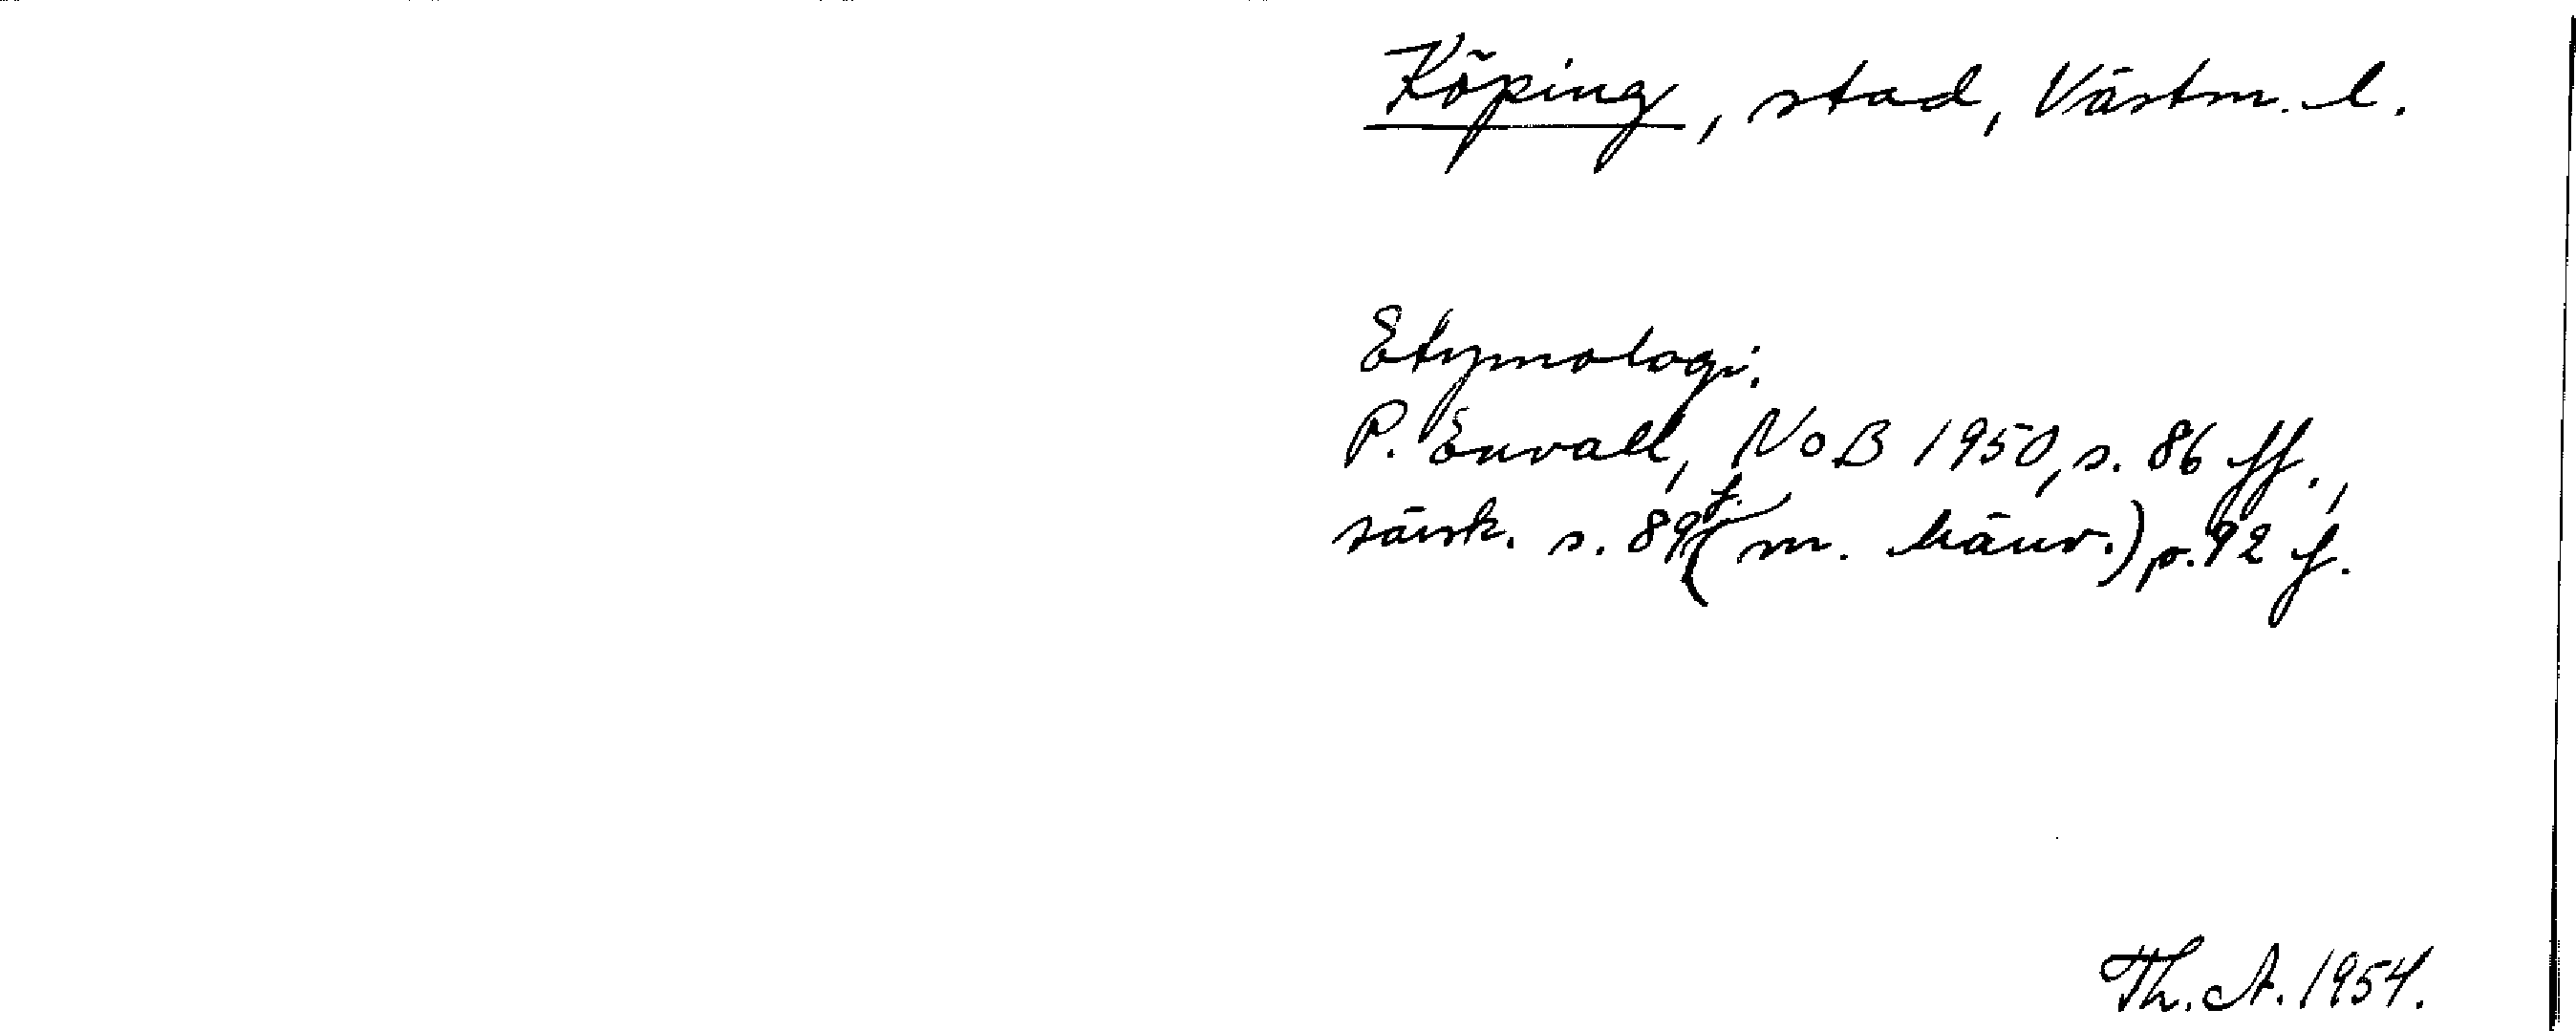 Köping, stad, Västm. l.
Etymologi.
P. Envall, NoB 1950, s. 86 ff.,
särsk. s. 89 f. (m. hänv.) o. 92 f.
Th. A. 1954.